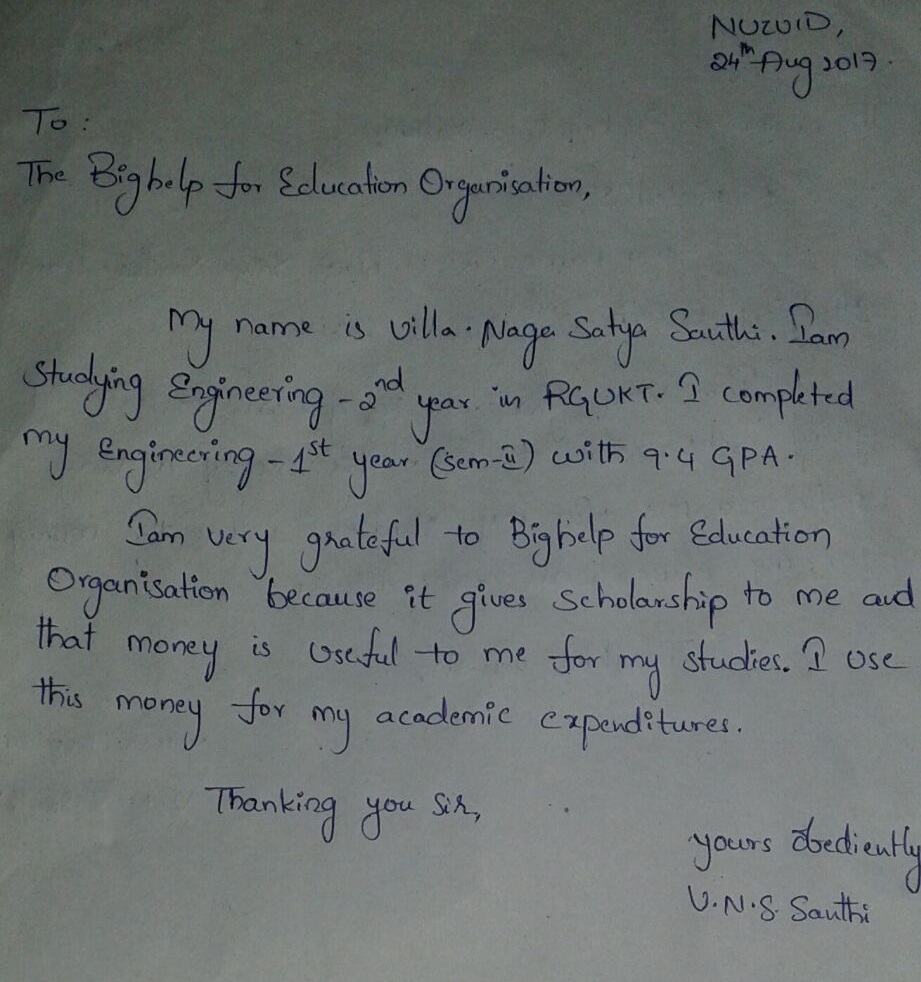 NUZVID,
24th Aug 2017.
To:
The Bighelp for Education Organisation,
My name is Villa. Naga Satya Santhi. Iam
Studying Engineering - 2nd year in RGUKT. I completed
my Engineering - 1st year (Sem-II) with 9.4 GPA.
Iam very grateful to Bighelp for Education
Organisation because it gives scholarship to me and
that money is useful to me for my studies. I use
this money for my academic expenditures.
Thanking you Sir,
yours obediently
V.N.S. Santhi